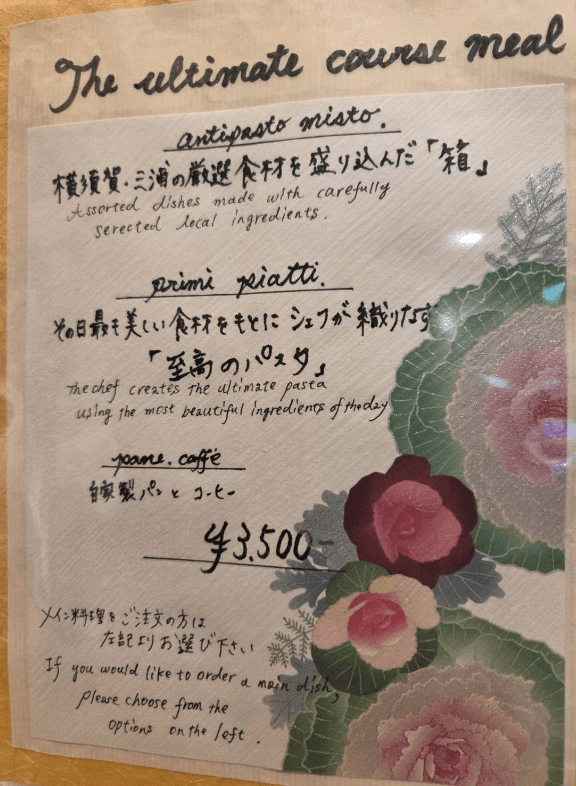 The ultimate course meal
antipasto misto.
横須賀・三浦の厳選食材を盛り込んだ「箱」
Assorted dishes made with carefully
serected local ingredients.
primi piatti.
その日最も美しい食材をもとに シェフが織りなす
「至高のパスタ」
The chef creates the ultimate pasta
using the most beautiful ingredients of the day
pane. caffé
自家製パンと コーヒー
¥3.500-
メイン料理をご注文の方は
左記よりお選び下さい
If you would like to order a main dish,
please choose from the
options on the left.